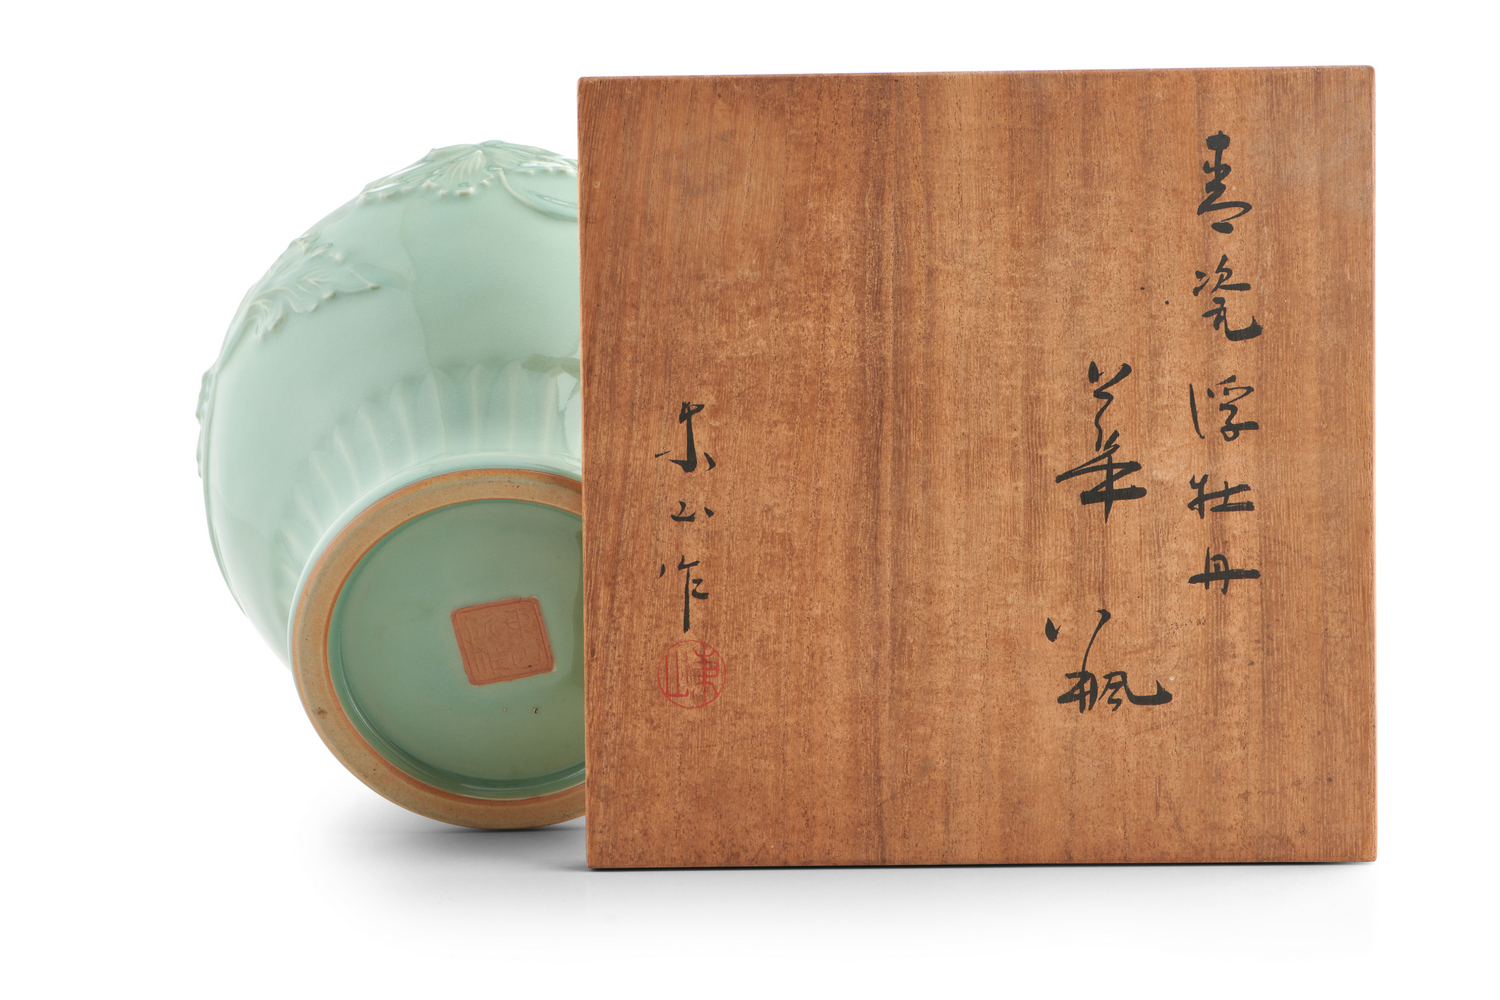 青瓷浮牡丹
華瓶
東山作
東山